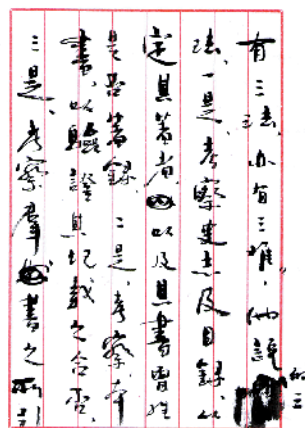 有三法，亦有三难，他説的三
法，一是、考察史志及目録，以
定其著者，以及其書曾经
是否著録。二是，考察本
書，以驗證其记载之合否，
三是、考察羣書之所引